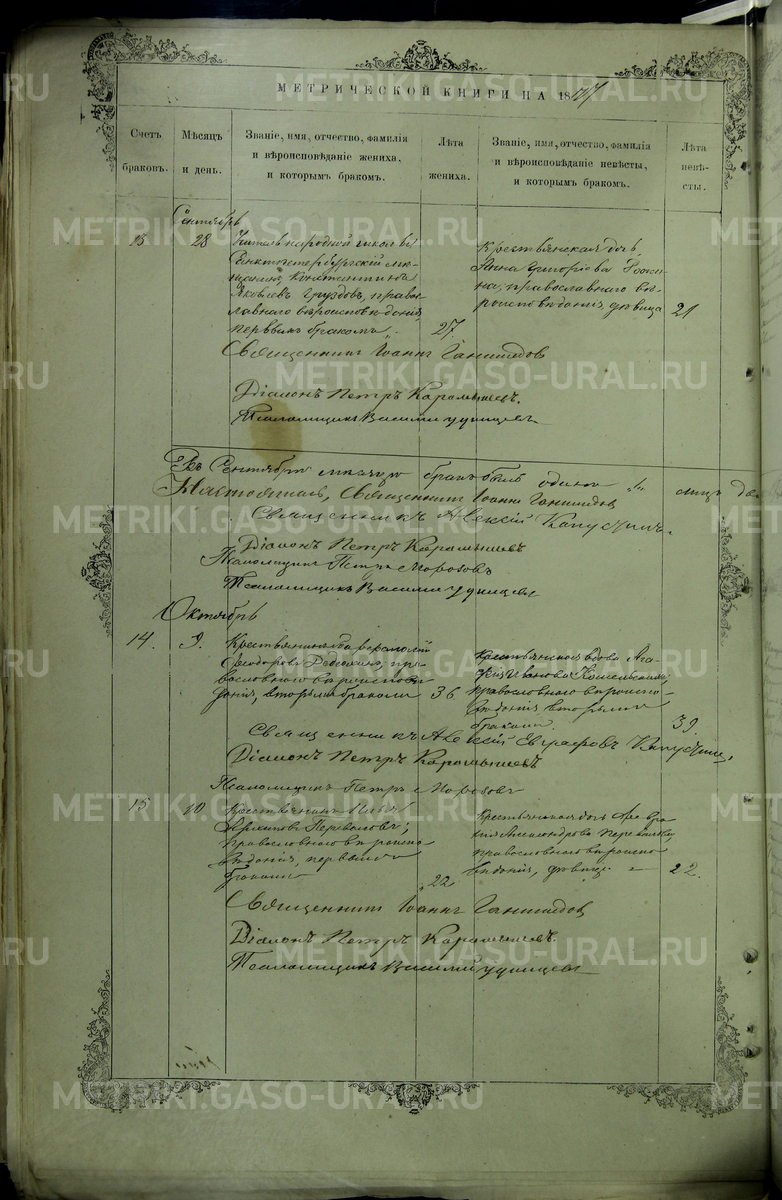 МЕТРИЧЕСКОЙ КНИГИ НА 1877
Счетъ браковъ.
Мѣсяцъ и день.
Званіе, имя, отчество, фамилія и вѣроисповѣданіе жениха, и которымъ бракомъ.
Лѣта жениха.
Званіе, имя, отчество, фамилія и вѣроисповѣданіе невѣсты, и которымъ бракомъ.
Лѣта невѣсты.
Сентябрь
13
28
Учитель народной школы
Санктпетербургскій мѣ-
щанинъ Константинъ
Яковлевъ Груздовъ, право-
славнаго вѣроисповѣданія,
первымъ бракомъ.
27
Крестьянская дочь,
Анна Григорьева
на, православнаго вѣ-
роисповѣданія, дѣвица
21
Священникъ Іоаннъ Ганимедовъ
Діаконъ Петръ Карамышевъ.
Псаломщикъ Василій Удинцевъ
Въ Сентябрѣ мѣсяцѣ бракъ былъ одинъ "1"
Настоятель, Священникъ Іоаннъ Ганимедовъ
Священникъ Алексій Капустинъ.
Діаконъ Петръ Карамышевъ
Псаломщикъ Петръ Морозовъ
Псаломщикъ Василій Удинцевъ
Октябрь
14.
9.
Крестьянинъ
Ѳеодоровъ пра-
вославнаго вѣроисповѣ-
данія, вторымъ бракомъ
36
Крестьянская вдова Ага-
Иванова
православнаго вѣроиспо-
вѣданія вторымъ
бракомъ
39.
Священникъ Алексій Евграфовъ Капустинъ,
Діаконъ Петръ Карамышевъ
Псаломщикъ Петръ Морозовъ
15
10
Крестьянинъ
Переваловъ,
православнаго вѣроиспо-
вѣданія, первымъ
бракомъ
22
Крестьянская дочь
Александрова Перевалова,
православнаго вѣроиспо-
вѣданія, дѣвица
22.
Священникъ Іоаннъ Ганимедовъ
Діаконъ Петръ Карамышевъ.
Псаломщикъ Василій Удинцевъ
METRIKI.GASO-URAL.RU